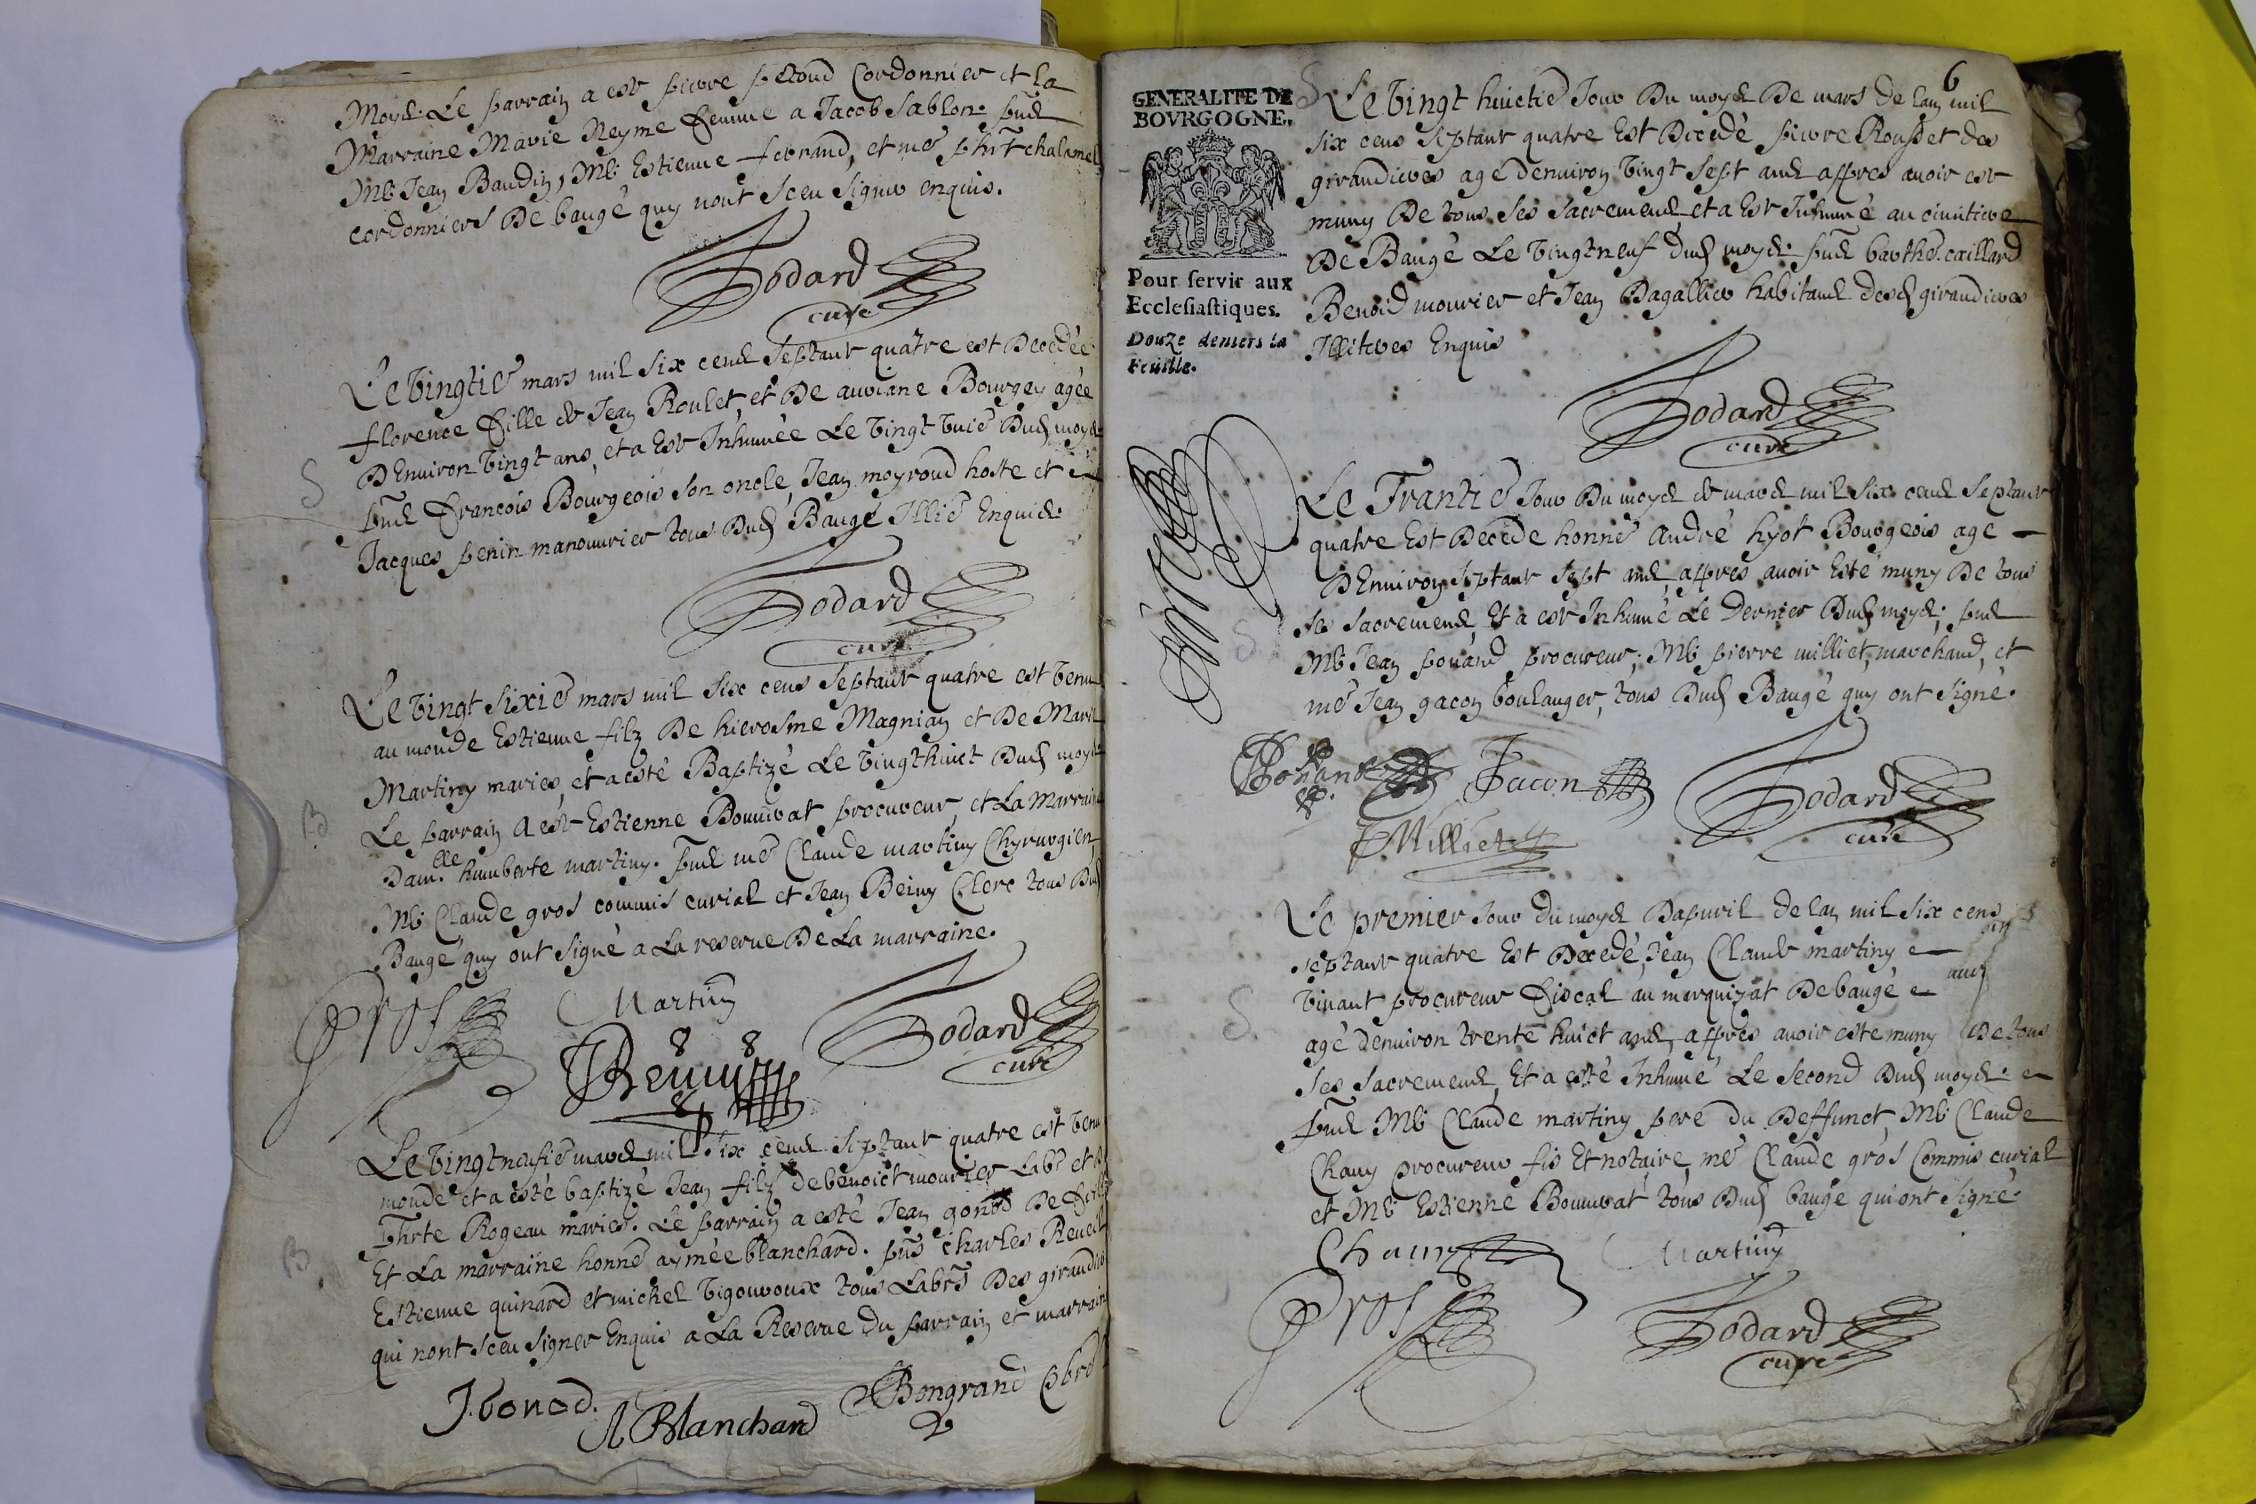 Moys. Le parrain a est pierre petoud Cordonnier et la
Marraine Marie Neyme femme a Jacob Sablon. pnts
Mr Jean Baudin, Mr Estienne febrand, et me phrt chalamel
cordonniers de baugé quy nont sceu signer enquis.
Dodard
curé
Le vingtie mars mil six cens septante quatre est decedée
florence fille de Jean Roulet, et de auviane Bourgey agée
denviron vingt ans, et a est Inhumée Le vingt unie dud moys
S
pnts François Bourgeois son oncle, Jean moyroud hoste et
Jacques penin manouvrier tous dud Baugé Illie Enquis.
Dodard
curé
Le vingt sixie mars mil six cens septante quatre est venu
au monde Estienne filz de hierosme Magnian et de Marie
Martiny mariés, et a esté Baptizé Le vingthuict dud moys
B
Le parrain a est Estienne Bouuvat procureur, et La Marraine
Dam.lle humberte martiny. pnts me Claude martiny Chyrurgien,
Mr Claude gros commis curial et Jean Reiny Clerc tous dud
Baugé quy ont signé a La reserve de La marraine.
Gros Martiny Dodard
curé
Reiny
Le vingtneufie mars mil six cens septante quatre est venu
monde et a esté baptizé Jean filz de benoict mourier Labr et
phrte Rogeau mariés. Le parrain a esté Jean gonod de
B
Et La marraine honne aymée blanchard. pns charles Reveil
Estienne quinard et michel vigouroux tous Labrs des giraudie
qui nont sceu signer Enquis a La Reserve du parrain et marrain
J. bonod. A Blanchard Bongrand pbre
6
GENERALITE DE
BOVRGOGNE.
Pour servir aux
Ecclesiastiques.
Douze deniers la
Feuille.
S
Le vingt huictie Jour du moys de mars de lan mil
six cens septante quatre Est decedé pierre Rousset des
giraudieres agé denviron vingt sept ans appres avoir est
muny de tous ses sacremens, et a est Inhumé au cimitiere
de Baugé Le vingtneuf dud moys. pnts barthe. caillard
Benoid mourier et Jean Dagallier habitans desd giraudieres
Illiteres Enquis
Dodard
curé
Le Trantie Jour du moys de mars mil six cens septante
quatre Est decede honne André hyot Bourgeois age
denviron septante sept ans, appres avoir Esté muny de tous
S
ses sacremens, Et a est Inhumé Le dernier dud moys; pnts
Mr Jean poüard procureur; Mr pierre milliet, marchand, et
me Jean gacon boulanger, tous dud Baugé quy ont signé.
Gacon Dodard
curé
Milliet
Le premier Jour du moys dapuril de lan mil six cens
septante quatre Est decedé, Jean Claude martiny
S
vivant procureur fiscal au marquizat de baugé
agé denviron trente huict ans, appres avoir este muny de tous
ses sacremens, Et a esté Inhumé Le second dud moys.
pnts Mr Claude martiny pere du deffunct, Mr Claude
Chany procureur fis Et notaire, me Claude gros Commis curial
et Mr Estienne Bouuvat tous dud baugé qui ont signé.
Chany Martiny
Gros Dodard
curé